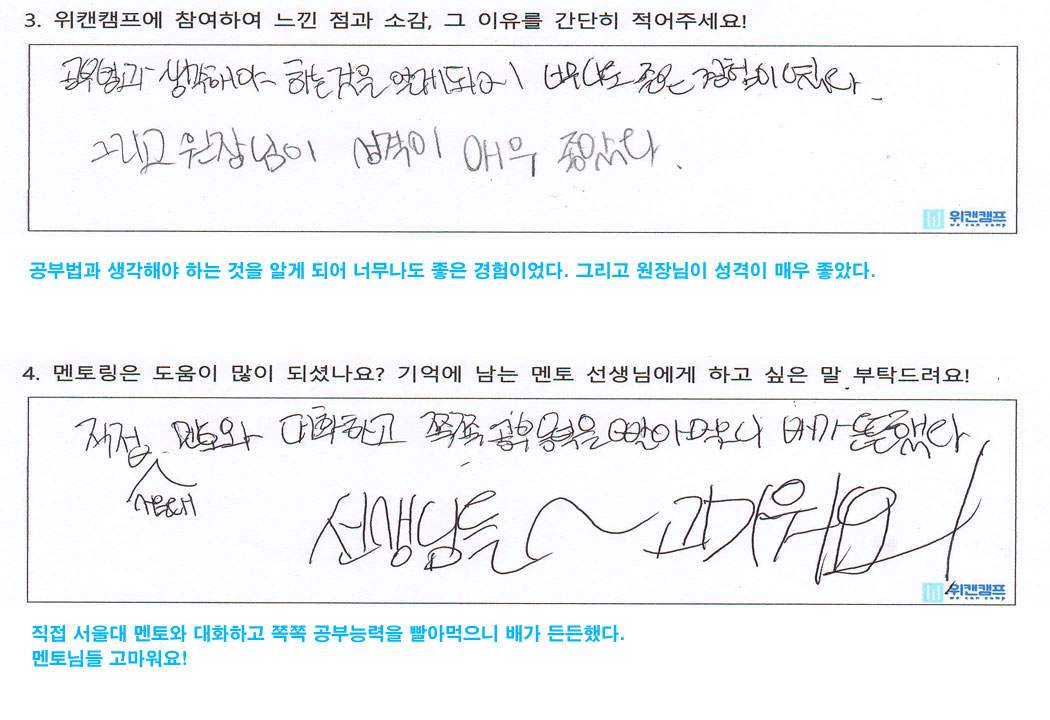 3. 위캔캠프에 참여하여 느낀 점과 소감, 그 이유를 간단히 적어주세요!
공부법과 생각해야 하는것을 알게되어 너무나도 좋은 경험이었다.
그리고 원장님이 성격이 매우 좋았다.
위캔캠프
we can camp
공부법과 생각해야 하는 것을 알게 되어 너무나도 좋은 경험이었다. 그리고 원장님이 성격이 매우 좋았다.
4. 멘토링은 도움이 많이 되셨나요? 기억에 남는 멘토 선생님에게 하고 싶은 말 부탁드려요!
직접 멘토와 대화하고 쪽쪽 공부능력을 빨아먹으니 배가 든든했다
서울대
선생님들~ 고마워요!
위캔캠프
we can camp
직접 서울대 멘토와 대화하고 쪽쪽 공부능력을 빨아먹으니 배가 든든했다.
멘토님들 고마워요!